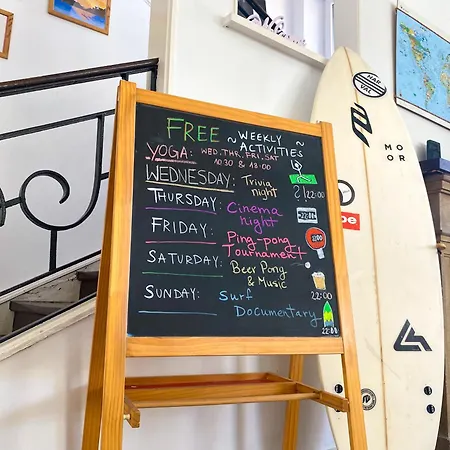 FREE ~ WEEKLY ~
ACTIVITIES
YOGA: WED, THR, FRI, SAT
10:30 & 18:00
WEDNESDAY: Trivia night 22:00
THURSDAY: Cinema night 22:00
FRIDAY: Ping-pong Tournament 22:00
SATURDAY: Beer Pong & Music 22:00
SUNDAY: Surf Documentary 22:00
MO
OR